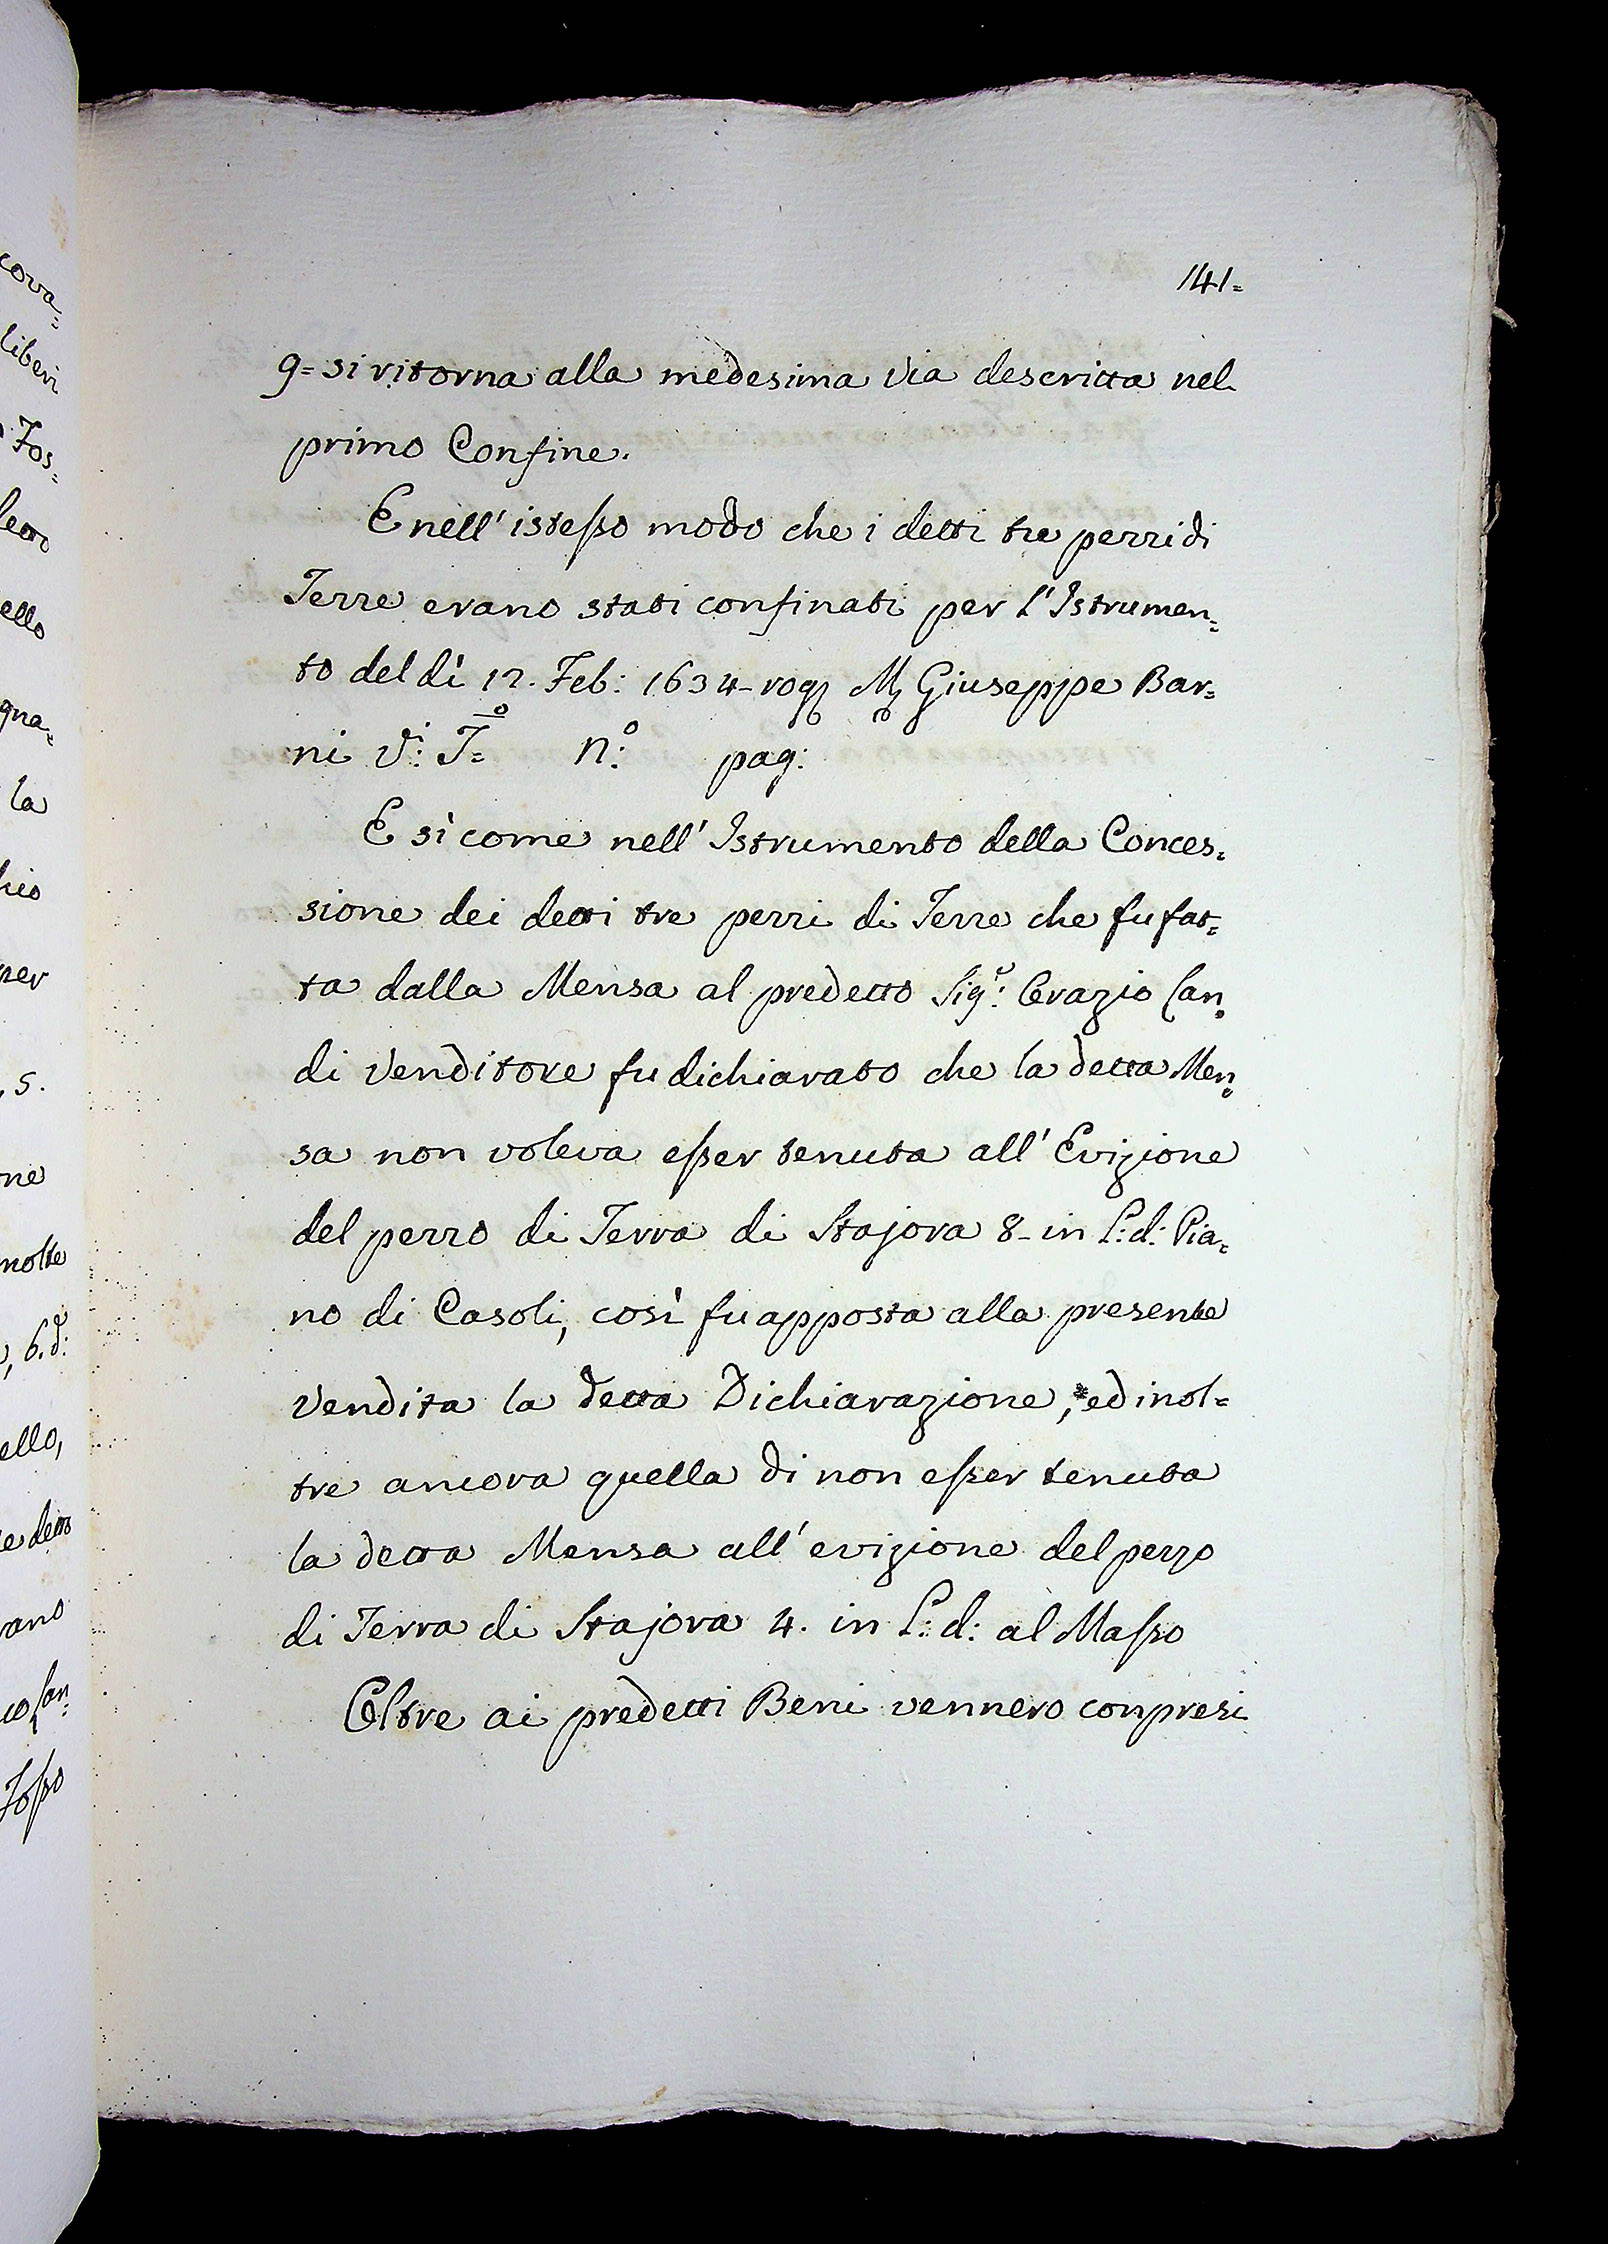 141=
9= si ritorna alla medesima via descritta nel
primo Confine.
E nell' istesso modo che i detti tre pezzi di
Terre erano stati confinati per l'Istrumen=
to del dì 12. Feb: 1634- rog: M: Giuseppe Bar=
ni V: T:º N:º pag:
E sì come nell' Istrumento della Conces=
sione dei detti tre pezzi di Terre che fu fat=
ta dalla Mensa al predetto Sig:r Orazio San=
di Venditore fu dichiarato che la detta Men=
sa non voleva esser tenuta all' Evizione
del pezzo di Terra di Stajora 8- in L: d: Pia=
no di Casoli, così fu apposta alla presente
Vendita la detta Dichiarazione,* ed inol=
tre ancora quella di non esser tenuta
la detta Mensa all' evizione del pezzo
di Terra di Stajora 4. in L: d: al Masso
Oltre ai predetti Beni vennero compresi
cova=
liberi
Fos=
ello
gna=
la
per
5.
ne
molte
6. d:
ello,
e detto
vano
Fosso